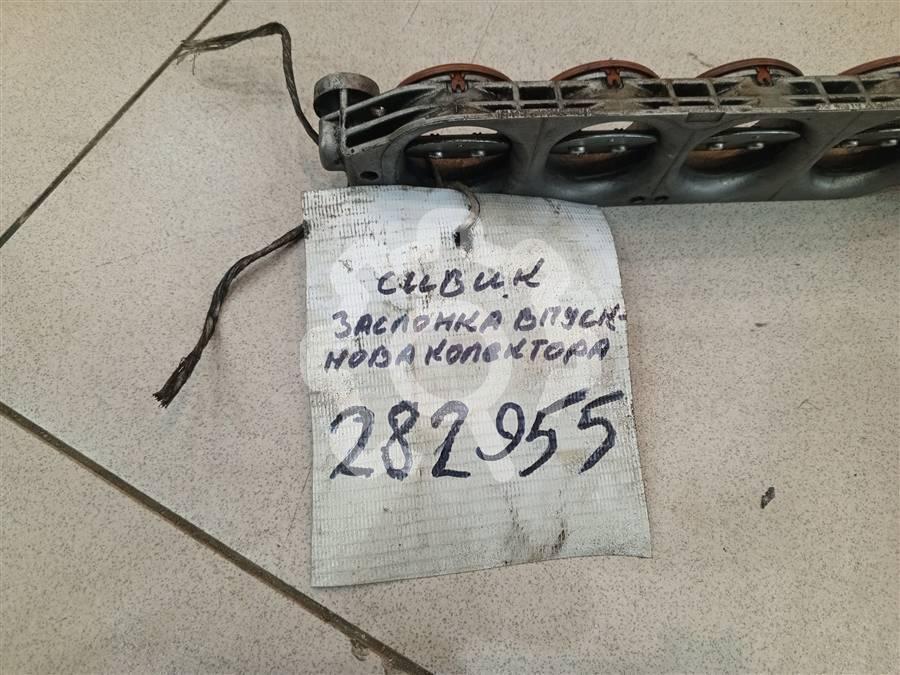 СИВИК
ЗАСЛОНКА ВПУСК-
НОВА КОЛЕКТОРА
282955